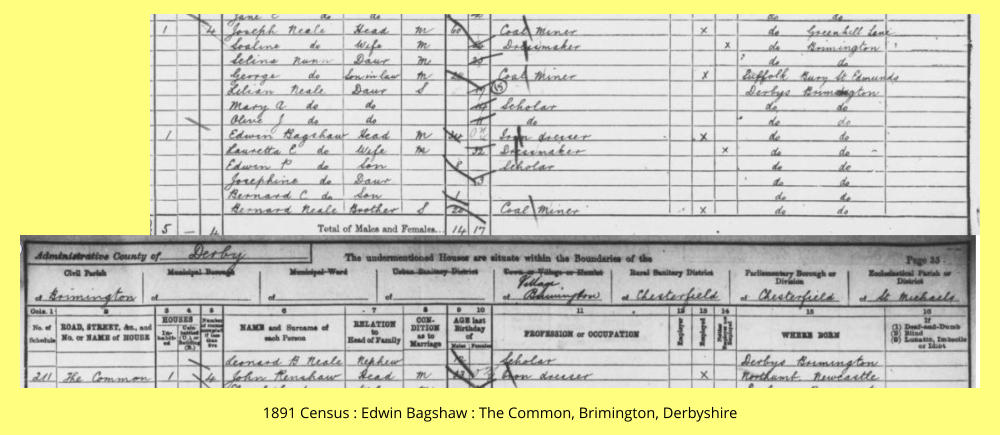 Jane E do do do do
1 4 Joseph Neale Head M 60 Coal Miner X do Greenhill Lane
do Wife M Dressmaker X do Brimington
Selina Nunn Daur M do do
George do Son in law M Coal Miner X Suffolk Bury St Edmunds
Lilian Neale Daur S 17 Derbys Brimington
Mary A do do Scholar do do
Olive J do do 11 do do do
1 Edwin Bagshaw Head M Iron dresser X do do
Lauretta E do Wife M 32 Dressmaker X do do
Edwin P do Son 8 Scholar do do
Josephine do Daur do do
Bernard C do Son 1 do do
Bernard Neale Brother S 20 Coal Miner X do do
5 — 4 Total of Males and Females... 14 17
Administrative County of Derby The undermentioned Houses are situate within the Boundaries of the Page 35
Civil Parish Municipal Borough Municipal Ward Urban Sanitary District Town or Village or Hamlet Rural Sanitary District Parliamentary Borough or Division Ecclesiastical Parish or District
of Brimington of of of Village Brimington of Chesterfield of Chesterfield of St Michaels
Cols. 1 2 3 4 5 6 7 8 9 10 11 12 13 14 15 16
No. of Schedule ROAD, STREET, &c., and No. or NAME of HOUSE HOUSES NAME and Surname of each Person RELATION to Head of Family CONDITION as to Marriage AGE last Birthday of PROFESSION or OCCUPATION Employer Employed WHERE BORN If (1) Deaf-and-Dumb (2) Blind (3) Lunatic, Imbecile or Idiot
Leonard B Neale Nephew Scholar Derbys Brimington
211 The Common 1 4 John Renshaw Head M Iron dresser X Northumb Newcastle
1891 Census : Edwin Bagshaw : The Common, Brimington, Derbyshire